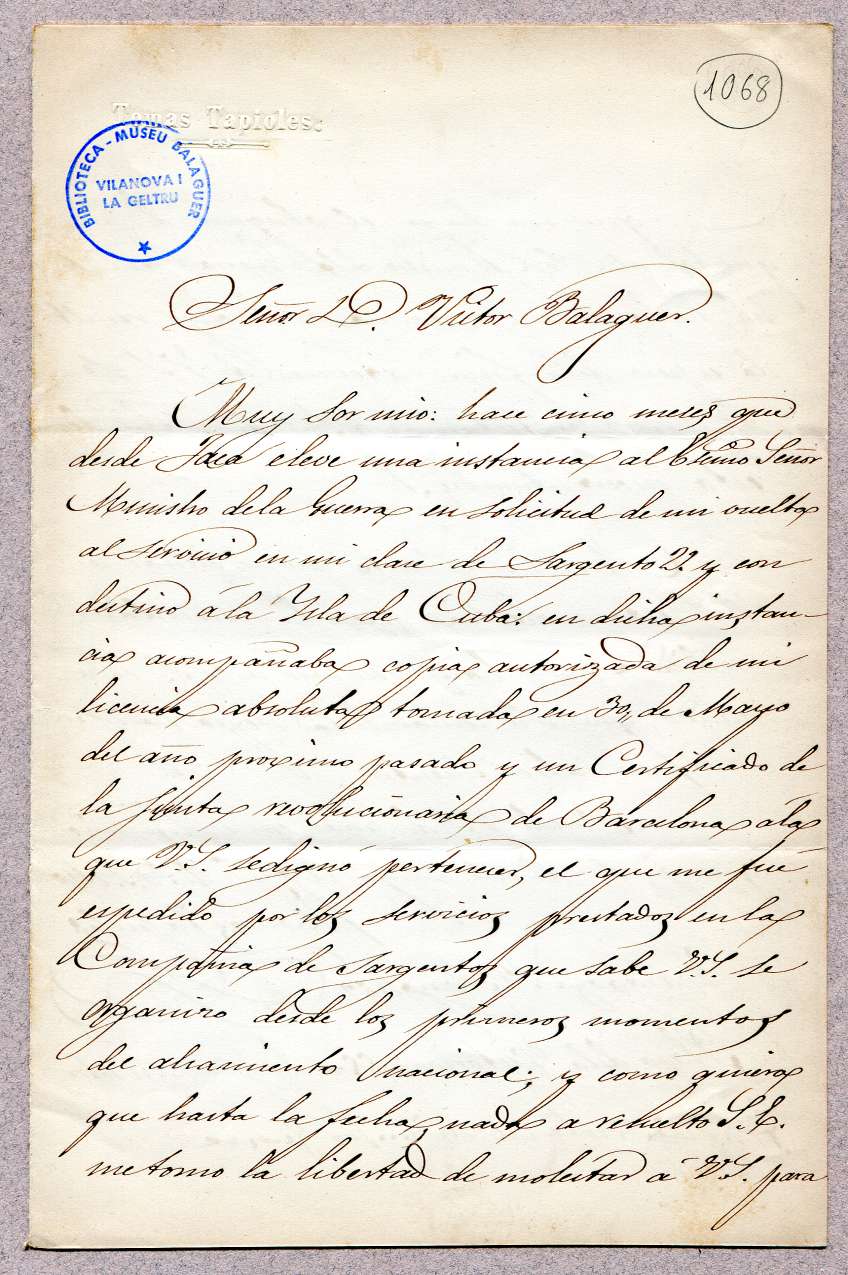 1068
Tomás Tapioles:
BIBLIOTECA - MUSEU BALAGUER
VILANOVA I
LA GELTRU
Señor D. Victor Balaguer.
Muy Sor mio: hace cinco meses que
desde Jaca eleve una instancia al Exmo Señor
Ministro de la Guerra en solicitud de mi vuelta
al servicio en mi clase de Sargento 2º y con
destino á la Ysla de Cuba: en dicha instan-
cia acompañaba copia autorizada de mi
licencia absoluta tomada en 30, de Mayo
del año proximo pasado y un Certificado de
la junta revolucionaria de Barcelona á la
que V.S. se dignó pertenecer, el que me fué
espedido por los servicios prestados en la
Compañia de Sargentos que sabe V.S. se
organizo desde los primeros momentos
del alzamiento nacional; y como quiera
que hasta la fecha, nada a resuelto S.E.
me tomo la libertad de molestar a V.S. para